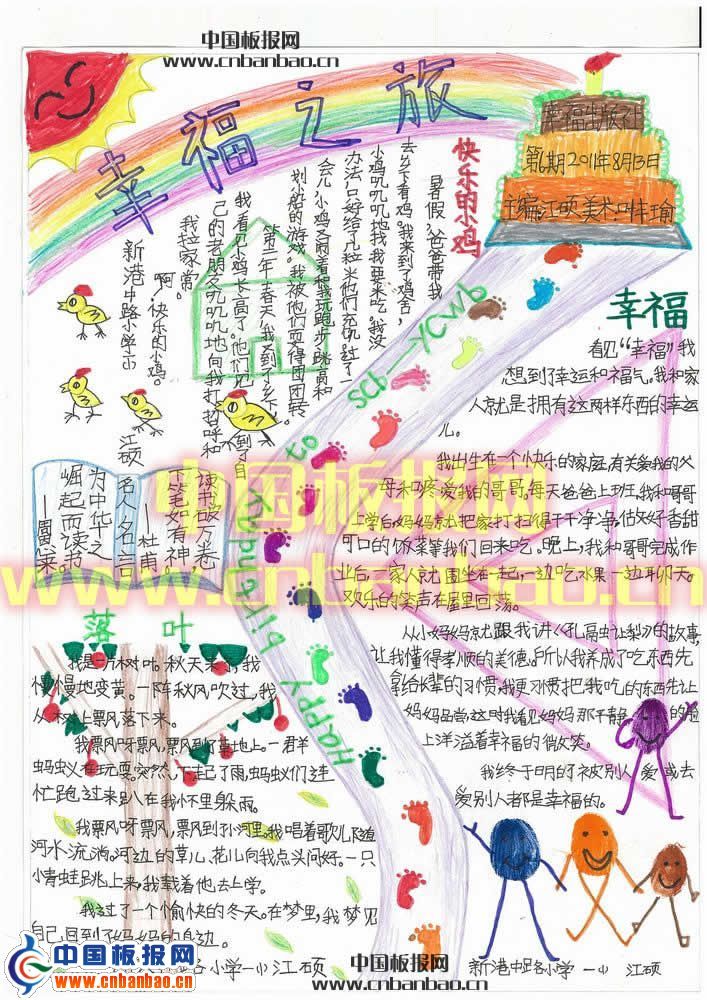 中国板报网
www.cnbanbao.cn
幸福之旅
幸福出版社
第6期2011年8月13日
主编:江硕 美术:叶瑜
快乐的小鸡
暑假,爸爸带我
去乡下看鸡。我来到了鸡舍,
小鸡叽叽叽地找我要米吃。我没
办法,只好给了几粒米他们充饥。过了一
会儿,小鸡又闹着和我玩跑步、跳高和
划小船的游戏。我被他们耍得团团转
第二年春天,我又到了乡下,
我看见小鸡长高了。他们见到了自
己的老朋友叽叽叽地向我打招呼和
我拉家常。
啊,快乐的小鸡。
新港中路小学
江硕
Happy billqunday to SCb—YCWb
幸福
看见“幸福”我
想到了幸运和福气。我和家
人就是拥有这两样东西的幸运
儿。
我出生在一个快乐的家庭,有关爱我的父
母和疼爱我的哥哥。每天爸爸上班,我和哥哥
上学后,妈妈就把家打扫得干干净净,做好香甜
可口的饭菜等我们回来吃。晚上,我和哥哥完成作
业后,一家人就围坐在一起,一边吃水果一边聊天。
欢乐的笑声在屋里回荡。
从小妈妈就跟我讲《孔融让梨》的故事,
让我懂得孝顺的美德。所以我养成了吃东西先
拿给长辈的习惯,我更习惯把我吃的东西先让
妈妈品尝,这时我看见妈妈那平静的脸
上洋溢着幸福的微笑。
我终于明白了被别人爱或去
爱别人都是幸福的。
名人名言
读书破万卷,
下笔如有神。
——杜甫
为中华之
崛起而读书
——周恩来。
中国板报网
www.cnbanbao.cn
落叶
我是一片树叶。秋天来了,我
慢慢地变黄。一阵秋风吹过,我
从树上飘落下来。
我飘呀飘,飘到了草地上。一群
蚂蚁在玩耍。突然,下起了雨,蚂蚁们连
忙跑过来趴在我怀里躲雨。
我飘呀飘,飘到小河里。我唱着歌儿随
河水流淌。河边的草儿、花儿向我点头问好。一只
小青蛙跳上来,我载着他去上学。
我过了一个愉快的冬天。在梦里,我梦见
自己回到了妈妈的身边。
路小学一小 江硕
中国板报网
www.cnbanbao.cn
中国板报网
cnbanbao.cn
新港中路小学 一小 江硕